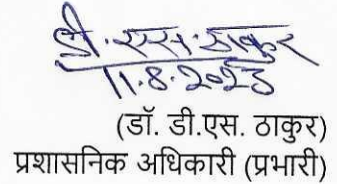 डी.एस.ठाकुर
11.8.2023
(डॉ. डी.एस. ठाकुर)
प्रशासनिक अधिकारी (प्रभारी)